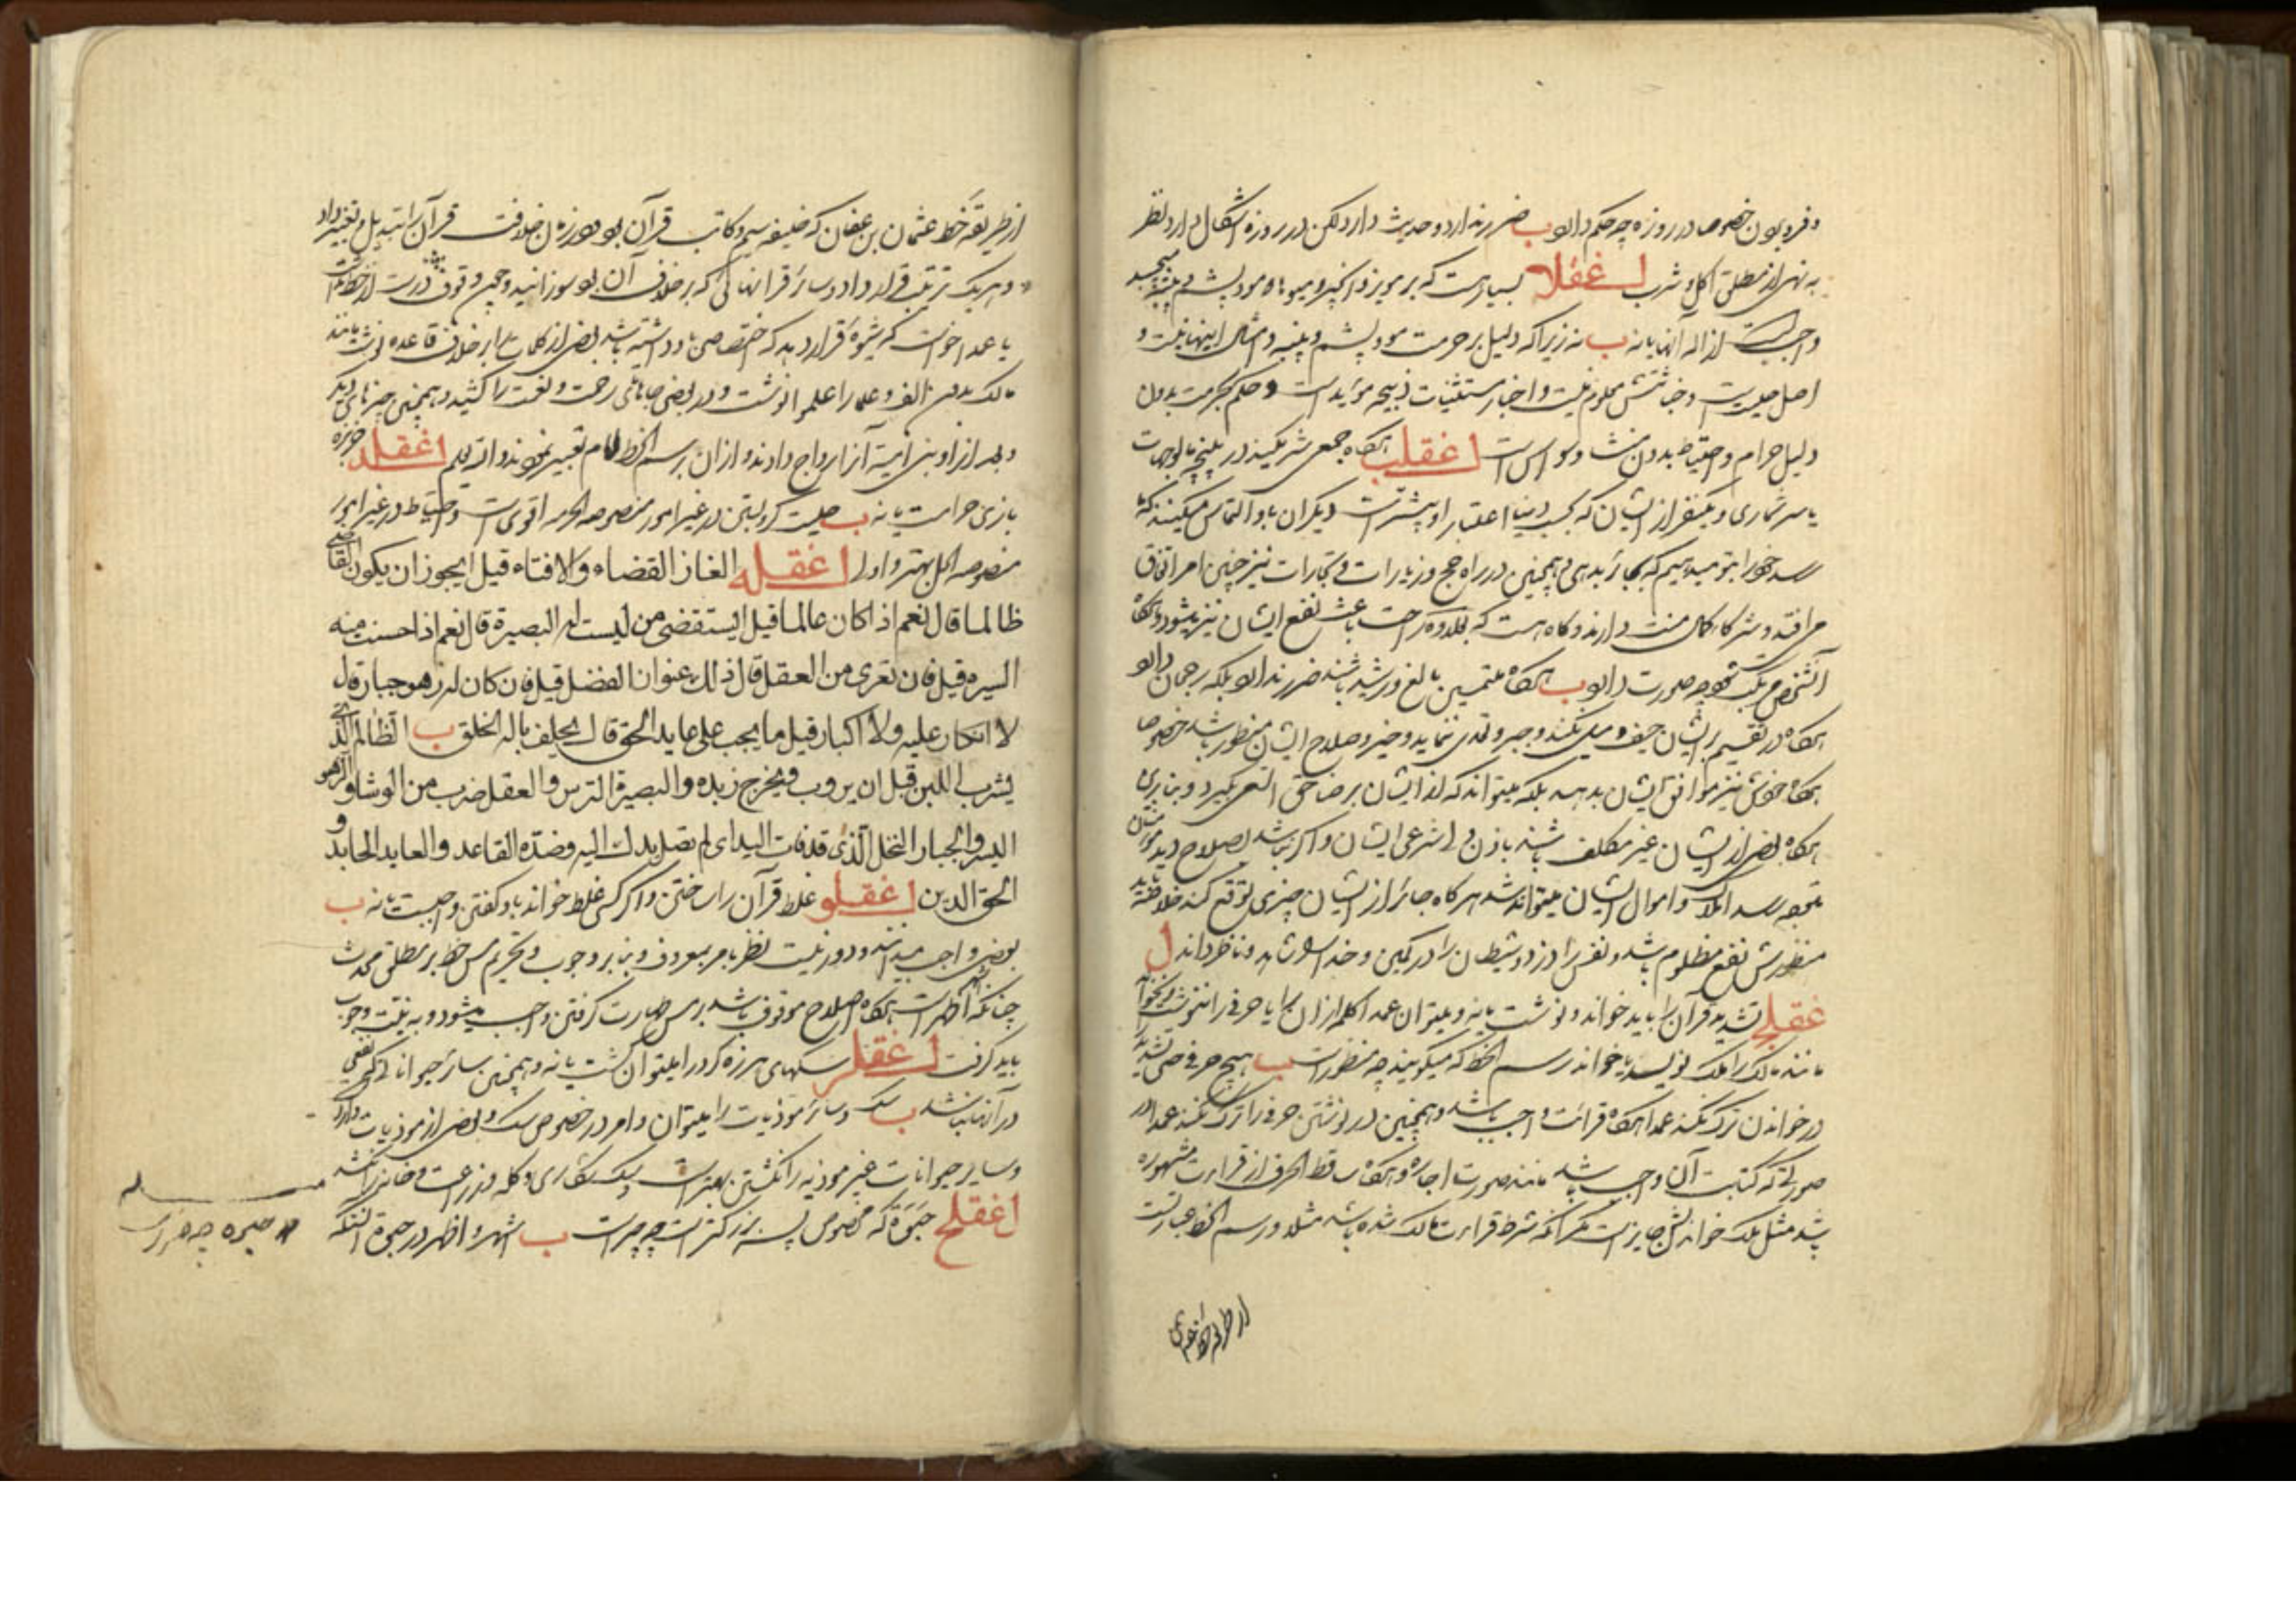 و فرو بردن خصوصا در روزه چه حکم دارد ب ضرر ندارد و حدیث دارد لکن در روزه اشکال دارد نظر
به نهی از مطلق اکل و شرب اغقلا بسیار است که بر مویز و انجیر و میوه‌ها مو و پشم و پنبه
واجبست ازاله آنها یا نه ب نه زیرا که دلیل بر حرمت مو و پشم و پنبه و امثال اینها نیست و
اصل حلیت است و خباثتش معلوم نیست و اخبار مستثنیات ذبیحه مؤید است و حکم بحرمت بدون
دلیل حرام و احتیاط بدون منشأ وسواس است اغقلب هرگاه جمعی شریکند در
یا سر شماری و یکنفر از ایشان که بحسب دنیا اعتبار او بیشتر است دیگران باو التماس میکنند که
رسد خود را بتو میدهیم که بجائر بدهی و همچنین در راه حج و زیارات و تجارات نیز چنین امر اتفاق
می افتد و شرکاء کمال منت دارند و گاه هست که باعث نفع ایشان نیز میشود
آنشخص چه صورت دارد ب هرگاه ملتمسین بالغ و رشید باشند ضرر ندارد بلکه رجحان دارد
هرگاه در تقسیم بر ایشان حیف و میل نکند و جبر و تعدی ننماید و خیر و صلاح ایشان منظور باشد خصوصا
هرگاه خودش نیز موافق ایشان بدهد بلکه میتواند که از ایشان برضا حق السعی بگیرد و بنابری
هرگاه بعضی از ایشان غیر مکلف باشند باذن ولی شرعی ایشان و اگر نباشد بصلاح دید مؤمنان
املاک و اموال ایشان میتواند شد هر گاه جائر از ایشان چیزی توقع کند خلاصه باید
منظورش نفع مظلوم باشد و نفس را دزد و شیطان را در کمین و خدا را شاهد و ناظر داند ا
غقلج تشدید قرآن را باید خواند و نوشت یا نه و میتوان عمدا کلمه از آن را یا حرفی را ننوشت و نخواند
مانند مالک را ملک نویسد یا خواند و رسم الخط که میگویند چه منظور است ب هیچ حرفی حتی تشدید را
در خواندن ترک نکند عمدا هرگاه قرائت واجب باشد و همچنین در نوشتن حرفی را ترک نکند عمدا در
صورتی که کتابت آن واجب باشد مانند صورت اجاره و هرگاه ساقط الحرف از قراءت مشهوره
باشد مثل ملک خواندنش جایز است مگر آنکه شرط قراءت مالک شده باشد مثلا و رسم الخط عبارتست
از طریقه خط عثمان
از طریقه خط عثمان بن عفان که خلیفه سیم و کاتب قرآن بود و در زمان خلافت قرآن را تبدیل و تغییر داد
و هر یک ترتیب قرار داد و سائر قرانهائی که بر خلاف آن بود سوزانید و چون وقوف درست از خط نداشت
یا عمدا خواست که شیوه قرار دهد که اختصاص باو داشته باشد بعضی از کلمات را بر خلاف قاعده نوشت مانند
مالک بدون الف و علما را علموا نوشت و در بعضی جاها تای رحمت و نعمت را کشید و همچنین چیزهای دیگر
و بعد از او بنی امیه آنرا رواج دادند و از آن برسم الخط امام تعبیر نمودند والله یعلم اغقلد خربزه
بازی حرامست یا نه ب حلیت گرو بستن در غیر امور منصوصه الحرمه اقوی است و احتیاط در غیر امور
منصوصه الحل بهتر و اولی اغقله الغاز القضاء و الافتاء قیل ایجوز ان یکون القاضی
ظالما قال نعم اذا کان عالما قیل ایستقضی من لیست له البصیرة قال نعم اذا حسنت منه
السیره قیل فان تعری من العقل قال ذلک عنوان الفضل قیل فان کان له زهو جبار قال
لا انکار علیه ولا اکبار قیل ما یجب علی عابد الحق قال یحلف باله الخلق ب الظالم الذی
یشرب اللبن قبل ان یروب و یخرج زبده و البصیرة الترس و العقل ضرب من الوشا و الزهو
البسر و الجبار النخل الذی قد فات الید ای لم تصل یدک الیه و ضده القاعد و العابد الجاحد و
الحق الدین اغقلو غلط قرآن را ساختن و اگر کسی غلط خواند باو گفتن واجبست یا نه ب
بعضی واجب میدانند و دور نیست نظر بامر بمعروف و بنابر وجوب و تحریم مس خط بر مطلق محدث
چنانکه اظهر است هرگاه اصلاح موقوف باشد بر مس طهارت گرفتن واجب میشود و به نیت وجوب
باید گرفت اغقلر سگهای هرزه گرد را میتوان کشت یا نه و همچنین سائر حیواناتی که نفعی
در آنها نباشد ب سگ و سائر موذیات را میتوان و امر در خصوص سگ و بعضی از موذیات وارد
و سایر حیوانات غیر موذیه را نکشتن بهتر است و سگ شکاری و گله و زراعت و خانه را نکشد
اغقلح حبوة که مخصوص پسر بزرگتر است چه چیز است ب اشهر و اظهر در حبوة آنستکه
حبوه چه چیز است